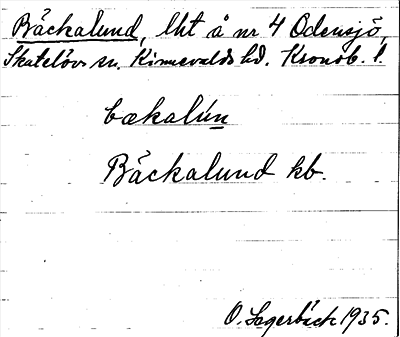 Bäckalund, lht å nr 4 Odensjö,
Skatelövs sn. Kinnevalds hd. Kronob. l.
bækalún
Bäckalund kb.
O. Lagerbäck 1935.